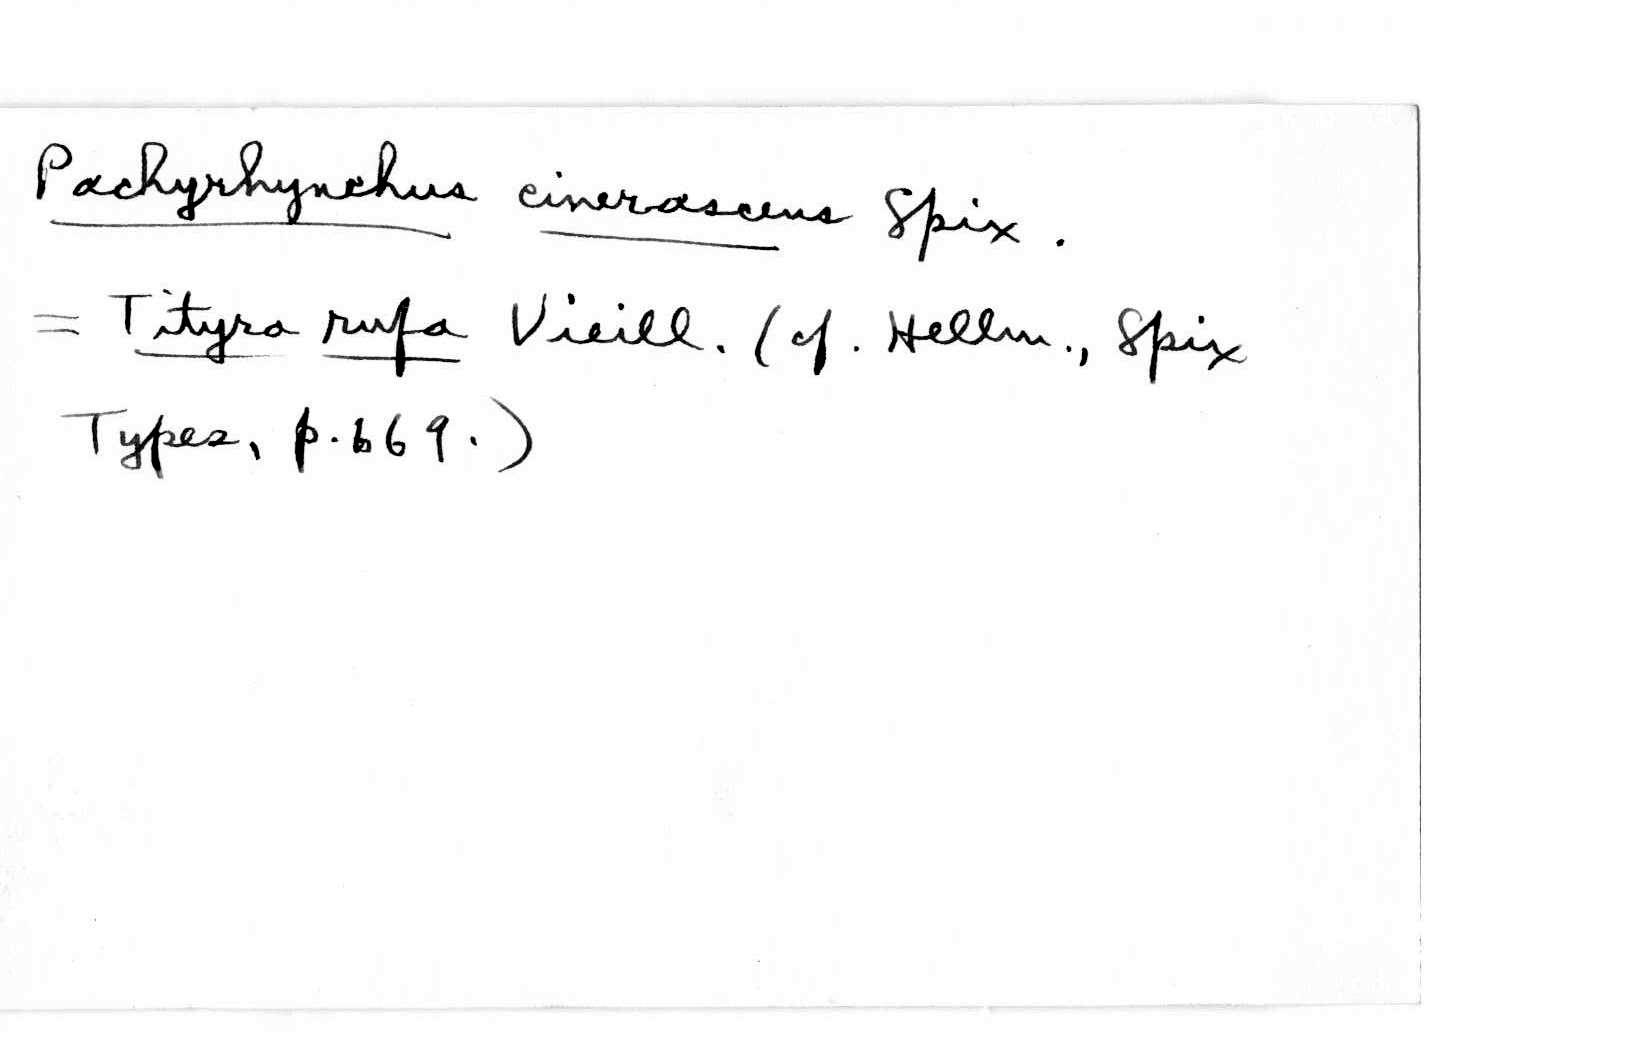 Pachyrhynchus cinerascens Spix.
= Tityra rufa Vieill. (cf. Hellm., Spix
Types, p. 669.)